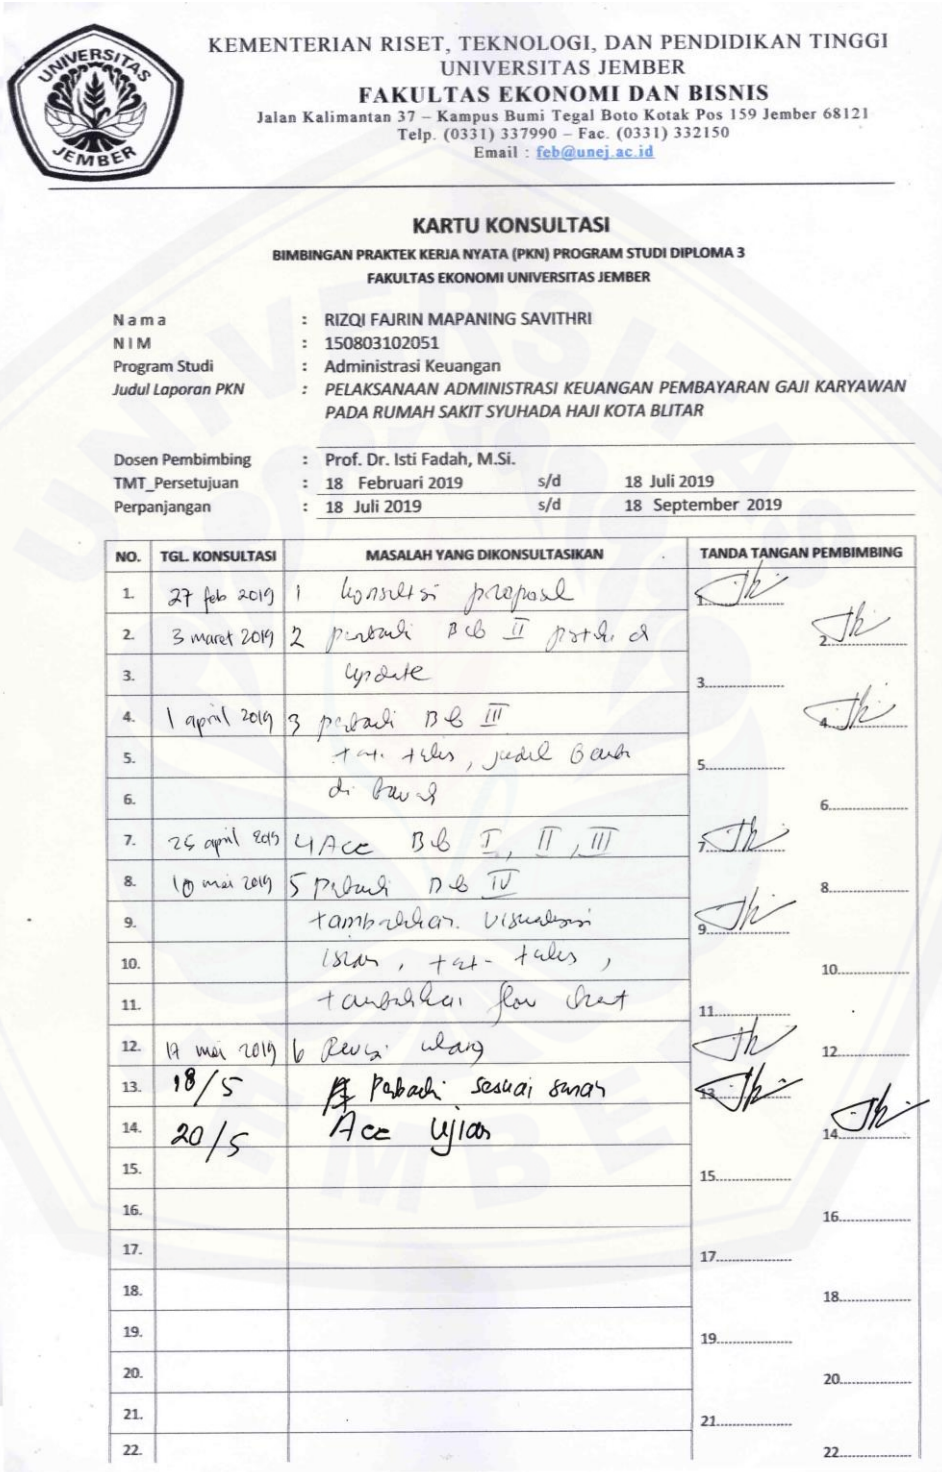 UNIVERSITAS
JEMBER
KEMENTERIAN RISET, TEKNOLOGI, DAN PENDIDIKAN TINGGI
UNIVERSITAS JEMBER
FAKULTAS EKONOMI DAN BISNIS
Jalan Kalimantan 37 – Kampus Bumi Tegal Boto Kotak Pos 159 Jember 68121
Telp. (0331) 337990 – Fac. (0331) 332150
Email : feb@unej.ac.id
KARTU KONSULTASI
BIMBINGAN PRAKTEK KERJA NYATA (PKN) PROGRAM STUDI DIPLOMA 3
FAKULTAS EKONOMI UNIVERSITAS JEMBER
Nama : RIZQI FAJRIN MAPANING SAVITHRI
NIM : 150803102051
Program Studi : Administrasi Keuangan
Judul Laporan PKN : PELAKSANAAN ADMINISTRASI KEUANGAN PEMBAYARAN GAJI KARYAWAN
PADA RUMAH SAKIT SYUHADA HAJI KOTA BLITAR
Dosen Pembimbing : Prof. Dr. Isti Fadah, M.Si.
TMT_Persetujuan : 18 Februari 2019 s/d 18 Juli 2019
Perpanjangan : 18 Juli 2019 s/d 18 September 2019
NO. TGL. KONSULTASI MASALAH YANG DIKONSULTASIKAN TANDA TANGAN PEMBIMBING
1. 27 feb 2019 1 konsultasi proposal 1
2. 3 maret 2019 2 Bab II 2
3. update 3
4. 1 april 2019 3 Bab III 4
5. tulis, judul 5
6. di 6
7. 25 april 2019 4 Acc Bab I, II, III 7
8. 10 mei 2019 5 Bab IV 8
9. tambahkan visualisasi 9
10. tulis, 10
11. tambahkan flow chart 11
12. 17 mei 2019 6 Revisi ulang 12
13. 18/5 sesuai saran 13
14. 20/5 Acc Ujian 14
15. 15
16. 16
17. 17
18. 18
19. 19
20. 20
21. 21
22. 22